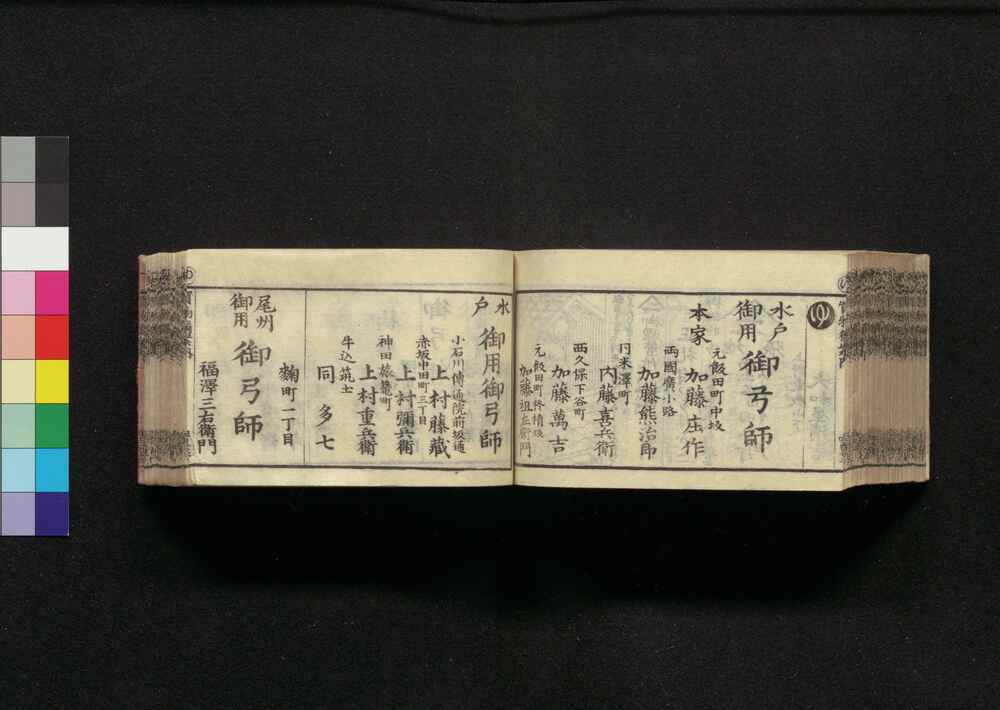 ゆ
水戸
御用
御弓師
本家
元飯田町中坂
加藤庄作
両國廣小路
加藤熊治郎
同米澤町
内藤喜兵衛
西久保下谷町
加藤萬吉
元飯田町
加藤祖左衛門
水戸
御用御弓師
小石川傳通院前坂通
上村藤藏
赤坂中田町三丁目
上村彌兵衛
神田旅籠町
上村重兵衛
牛込筑土
同多七
尾州
御用
御弓師
麹町一丁目
福澤三右衛門